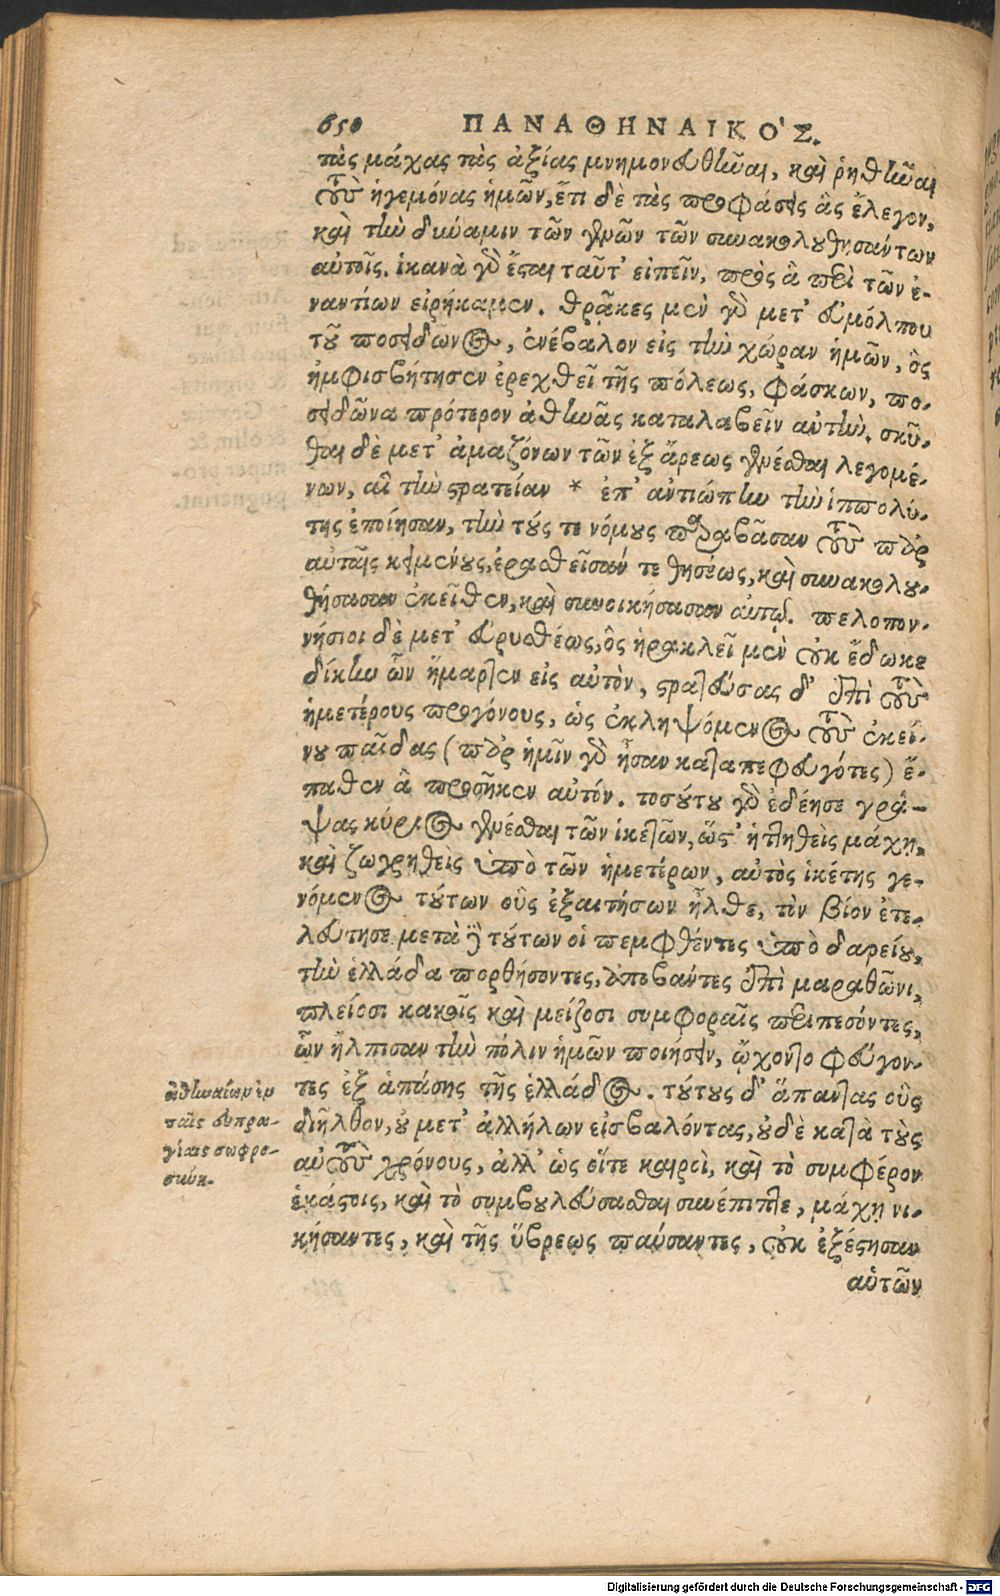 650 ΠΑΝΑΘΗΝΑΙΚΟ'Σ.
τὰς μάχας τὰς ἀξίας μνημονευθῆναι, καὶ ῥηθῆναι
τοὺς ἡγεμόνας ἡμῶν, ἔτι δὲ τὰς προφάσεις ἃς ἔλεγον,
καὶ τὴν δύναμιν τῶν γενῶν τῶν συνακολουθησάντων
αὐτοῖς. ἱκανὰ γὰρ ἔσται ταῦτ' εἰπεῖν, πρὸς ἃ περὶ τῶν ἐ-
ναντίων εἰρήκαμεν. θρᾷκες μὲν γὰρ μετ' εὐμόλπου
τοῦ ποσειδῶνος, ἐνέβαλον εἰς τὴν χώραν ἡμῶν, ὃς
ἠμφισβήτησεν ἐρεχθεῖ τῆς πόλεως, φάσκων, πο-
σειδῶνα πρότερον ἀθηνᾶς καταλαβεῖν αὐτήν. σκύ-
θαι δὲ μετ' ἀμαζόνων τῶν ἐξ ἄρεως γενέσθαι λεγομέ-
νων, αἳ τὴν στρατείαν * ἐπ' ἀντιώπην τὴν ἱππολύ-
της ἐποίησαν, τὴν τούς τε νόμους παραβᾶσαν τοὺς παρ'
αὐταῖς κειμένους, ἐρασθεῖσάν τε θησέως, καὶ συνακολου-
θήσασαν ἐκεῖθεν, καὶ συνοικήσασαν αὐτῷ. πελοπον-
νήσιοι δὲ μετ' εὐρυσθέως, ὃς ἡρακλεῖ μὲν οὐκ ἔδωκε
δίκην ὧν ἥμαρτεν εἰς αὐτὸν, στρατεύσας δ' ἐπὶ τοὺς
ἡμετέρους προγόνους, ὡς ἐκληψόμενος τοὺς ἐκεί-
νου παῖδας (παρ' ἡμῖν γὰρ ἦσαν καταπεφευγότες) ἔ-
παθεν ἃ προσῆκεν αὐτόν. τοσούτου γὰρ ἐδέησε γρά-
ψας κύριος γενέσθαι τῶν ἱκετῶν, ὥστ' ἡττηθεὶς μάχῃ,
καὶ ζωγρηθεὶς ὑπὸ τῶν ἡμετέρων, αὐτὸς ἱκέτης γε-
νόμενος τούτων οὓς ἐξαιτήσων ἦλθε, τὸν βίον ἐτε-
λεύτησε. μετὰ δὲ τούτων οἱ πεμφθέντες ὑπὸ δαρείου,
τὴν ἑλλάδα πορθήσοντες, ἀποβάντες ἐπὶ μαραθῶνι,
πλείοσι κακοῖς καὶ μείζοσι συμφοραῖς περιπεσόντες,
ὧν ἤλπισαν τὴν πόλιν ἡμῶν ποιήσειν, ᾤχοντο φεύγον-
τες ἐξ ἁπάσης τῆς ἑλλάδος. τούτους δ' ἅπαντας οὓς
διῆλθον, οὐ μετ' ἀλλήλων εἰσβαλόντας, οὐδὲ κατὰ τοὺς
αὐτοὺς χρόνους, ἀλλ' ὡς οἵτε καιροὶ, καὶ τὸ συμφέρον
ἑκάστοις, καὶ τὸ συμβουλεύσασθαι συνέπιπτε, μάχῃ νι-
κήσαντες, καὶ τῆς ὕβρεως παύσαντες, οὐκ ἐξέστησαν
αὑτῶν
ἀθηναίων ἐν
ταῖς εὐπρα-
γίαις σωφρο-
σύνη.
Digitalisierung gefördert durch die Deutsche Forschungsgemeinschaft - DFG